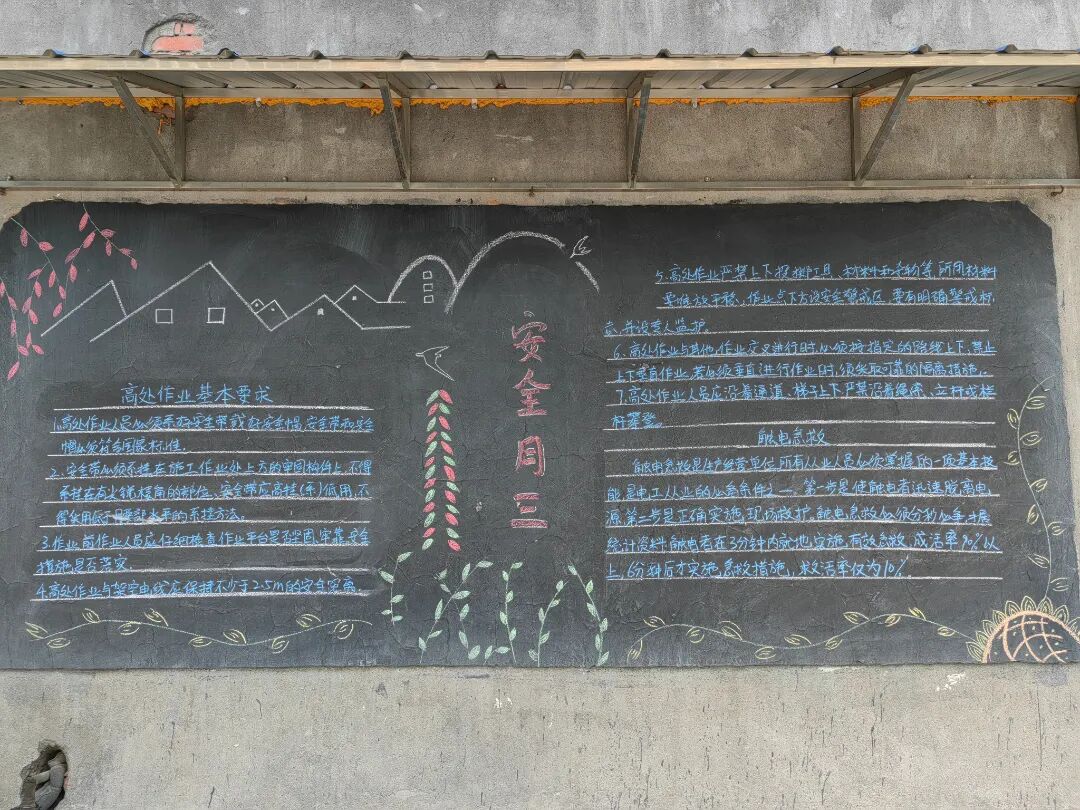 高处作业基本要求
1.高处作业人员必须系好安全带戴好安全帽,安全带和安全
帽必须符合国家标准.
2.安全带必须系挂在施工作业处上方的牢固构件上,不得
系挂在有尖锐棱角的部位,安全带应高挂(系)低用,不
得采用低于腰部水平的系挂方法。
3.作业前作业人员应仔细检查作业平台是否坚固,牢靠,安全
措施是否落实.
4.高处作业与架空电线应保持不少于2.5m的安全距离
安
全
月
三
5.高处作业严禁上下投掷工具、材料和杂物等,所用材料
要堆放平稳,作业点下方设安全警戒区,要有明确警戒标
志,并设专人监护.
6、高处作业与其他作业交叉进行时,必须按指定的路线上下,禁止
上下垂直作业,若必须垂直进行作业时,须采取可靠的隔离措施.
7.高处作业人员应沿着通道、梯子上下,严禁沿着绳索、立杆或栏
杆攀登。
触电急救
触电急救是生产经营单位所有从业人员必须掌握的一项基本技
能,是电工从业的必备条件之一、第一步是使触电者迅速脱离电
源,第二步是正确实施现场救护.触电急救必须分秒必争,据
统计资料,触电者在3分钟内就地实施有效急救,成活率90%以
上,6分钟后才实施急救措施,救活率仅为10%.